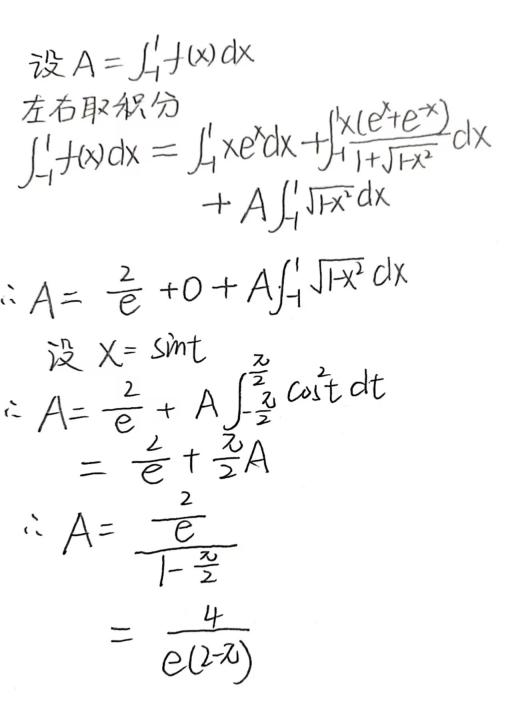 设 A = ∫₋₁¹ f(x) dx
左右取积分
∫₋₁¹ f(x) dx = ∫₋₁¹ xeˣ dx + ∫₋₁¹ x(eˣ+e⁻ˣ)/(1+√(1-x²)) dx
+ A∫₋₁¹ √(1-x²) dx
∴ A = 2/e + 0 + A∫₋₁¹ √(1-x²) dx
设 x = sint
∴ A = 2/e + A∫_{-π/2}^{π/2} cos²t dt
= 2/e + π/2 A
∴ A = (2/e)/(1 - π/2)
= 4/(e(2-π))